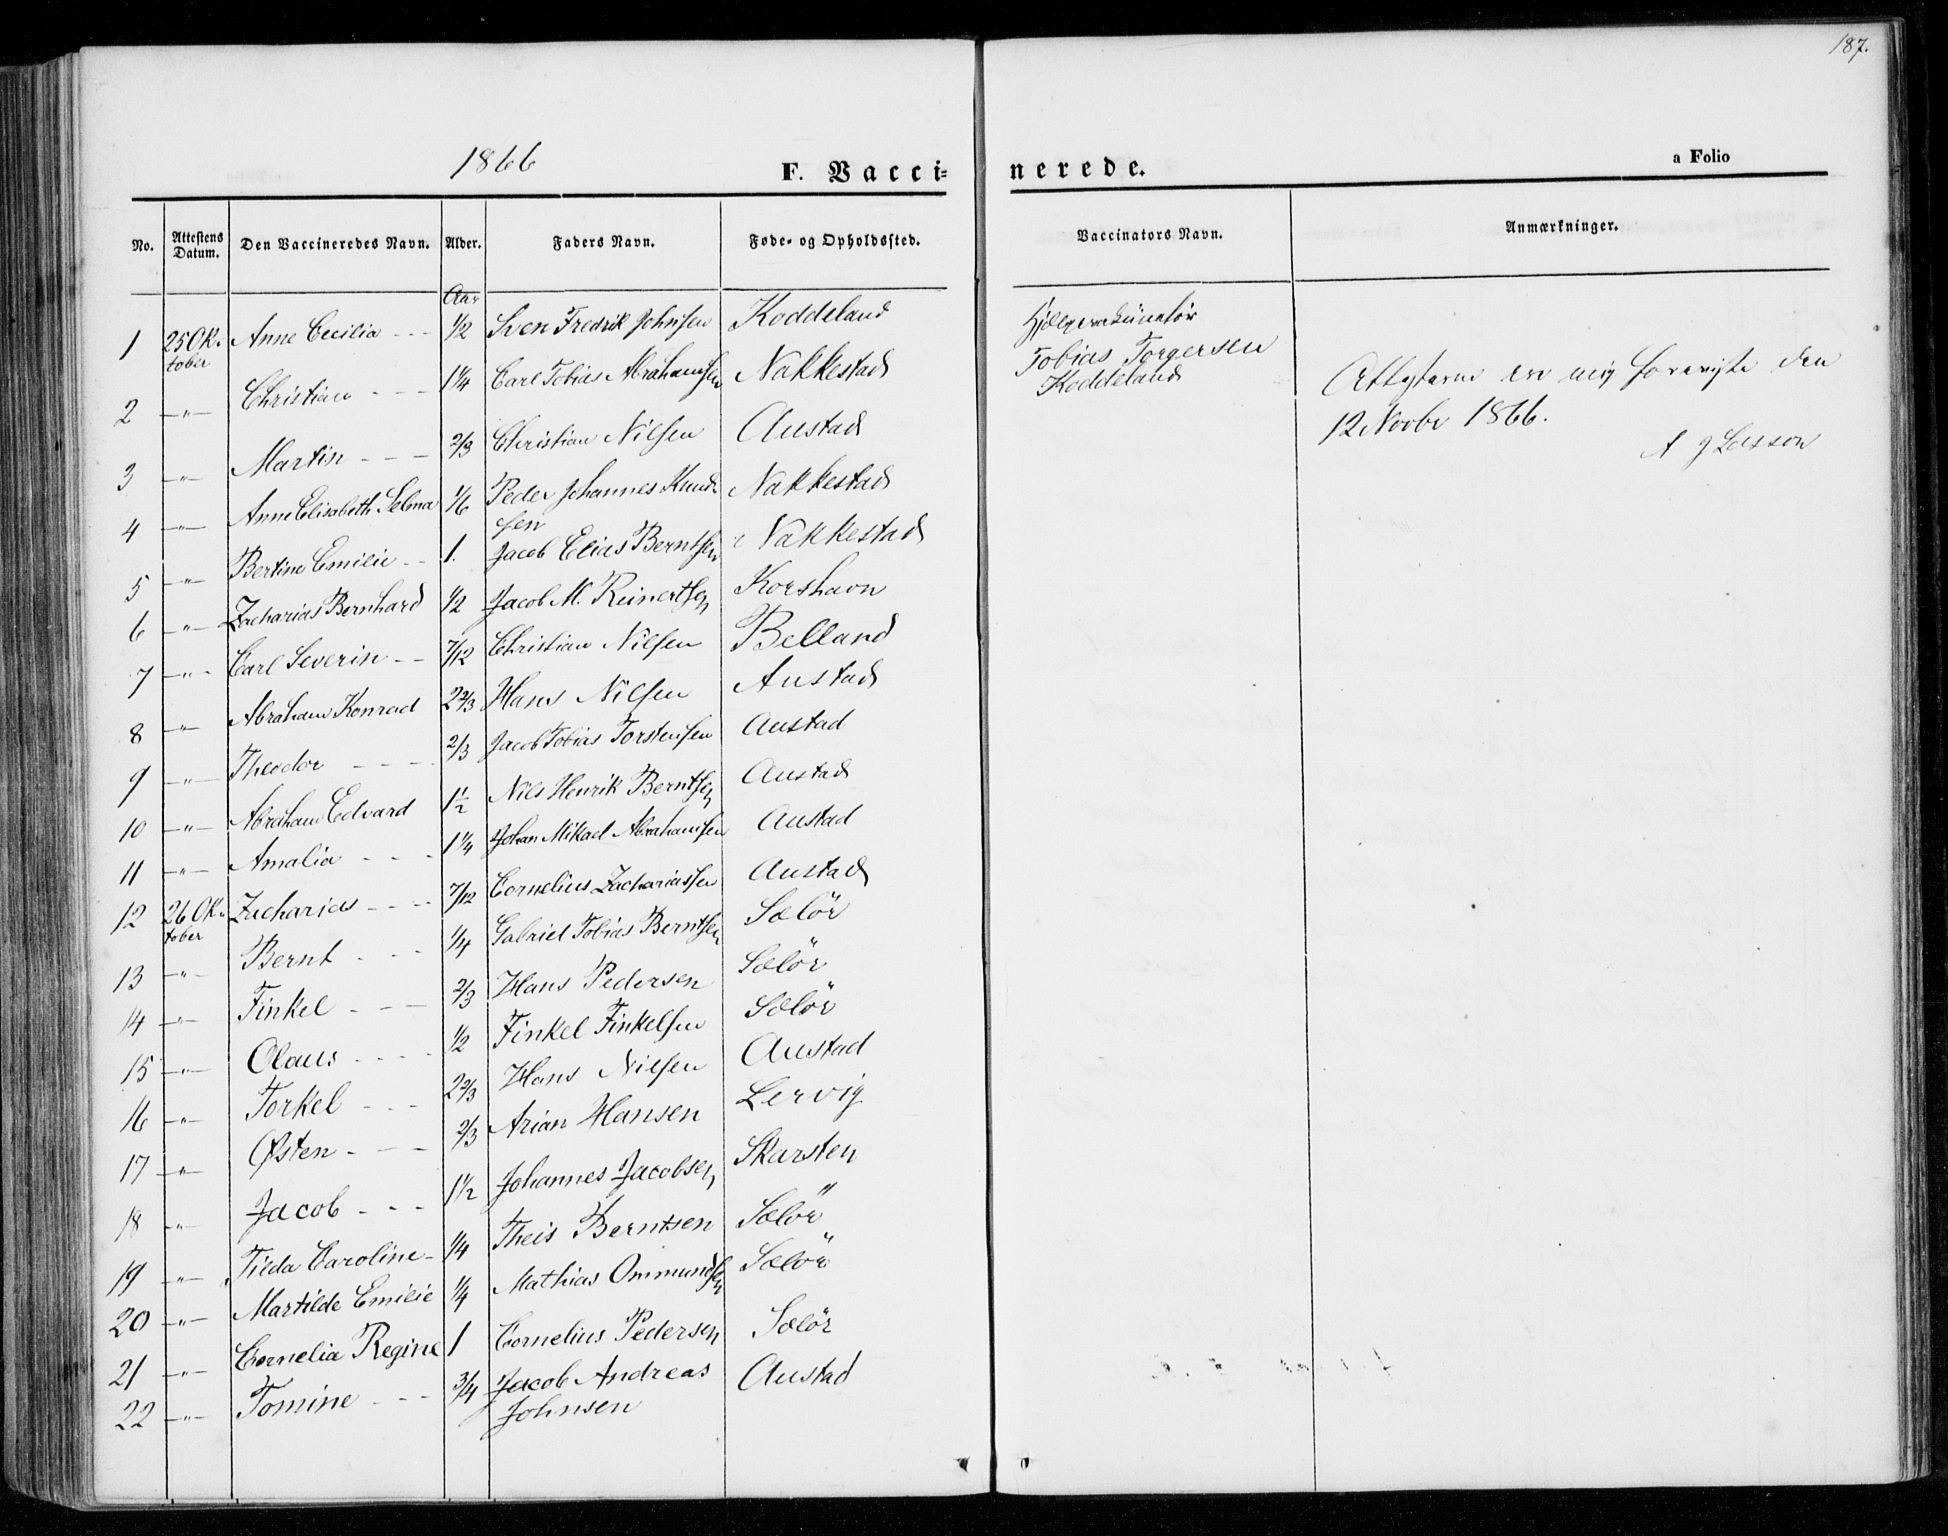 187.
1866
F. Vaccinerede.
a Folio
No. Attestens Datum. Den Vaccineredes Navn. Alder. Faders Navn. Føde- og Opholdssted. Vaccinators Navn. Anmærkninger.
Aar
1 25 Oktober Anne Cecilia - - - 1/2 Sven Fredrik Johnsen Koddeland
2 -"- Christian - - - 1 1/4 Carl Tobias Abrahamsen Nakkestad
3 -"- Martin - - - 2/3 Christian Nilsen Austad
4 -"- Anne Elisabeth Selma 1/6 Peder Johannes Knudsen Nakkestad
5 -"- Bertine Emilie - - 1. Jacob Elias Berntsen Nakkestad
6 -"- Zacharias Bernhard 1/2 Jacob M. Reinertsen Korshavn
7 -"- Carl Severin - - 7/12 Christian Nilsen Belland
8 -"- Abraham Konrad 2 2/3 Hans Nilsen Austad
9 -"- Theodor - - - - 2/3 Jacob Tobias Torstensen Austad
10 -"- Abraham Edvard 1 1/2 Nils Henrik Berntsen Austad
11 -"- Amalia - - - 1 1/4 Johan Mikael Abrahamsen Austad
12 26 Oktober Zacharias - - - - 7/12 Cornelius Zachariassen Austad
13 -"- Bernt - - - 1/4 Gabriel Tobias Berntsen Sælör
14 -"- Finkel - - - 2/3 Hans Pedersen Sælör
15 -"- Olaus - - - - 1/2 Finkel Finkelsen Sælör
16 -"- Torkel - - - 2 2/3 Hans Nilsen Austad
17 -"- Østen - - - 2/3 Arian Hansen Lervig
18 -"- Jacob - - - 1 1/2 Johannes Jacobsen Skarsten
19 -"- Tilda Caroline - 1/4 Theis Berntsen Sælör
20 -"- Martilde Emilie 1/4 Mathias Ommundsen Sælör
21 -"- Cornelia Regine 1 Cornelius Pedersen Sælör
22 -"- Tomine - - - 3/4 Jacob Andreas Johnsen Austad
Hjælpevakcinatör
Tobias Torgersen
Koddeland
Attesterne ere mig foreviste den
12 Novbr 1866.